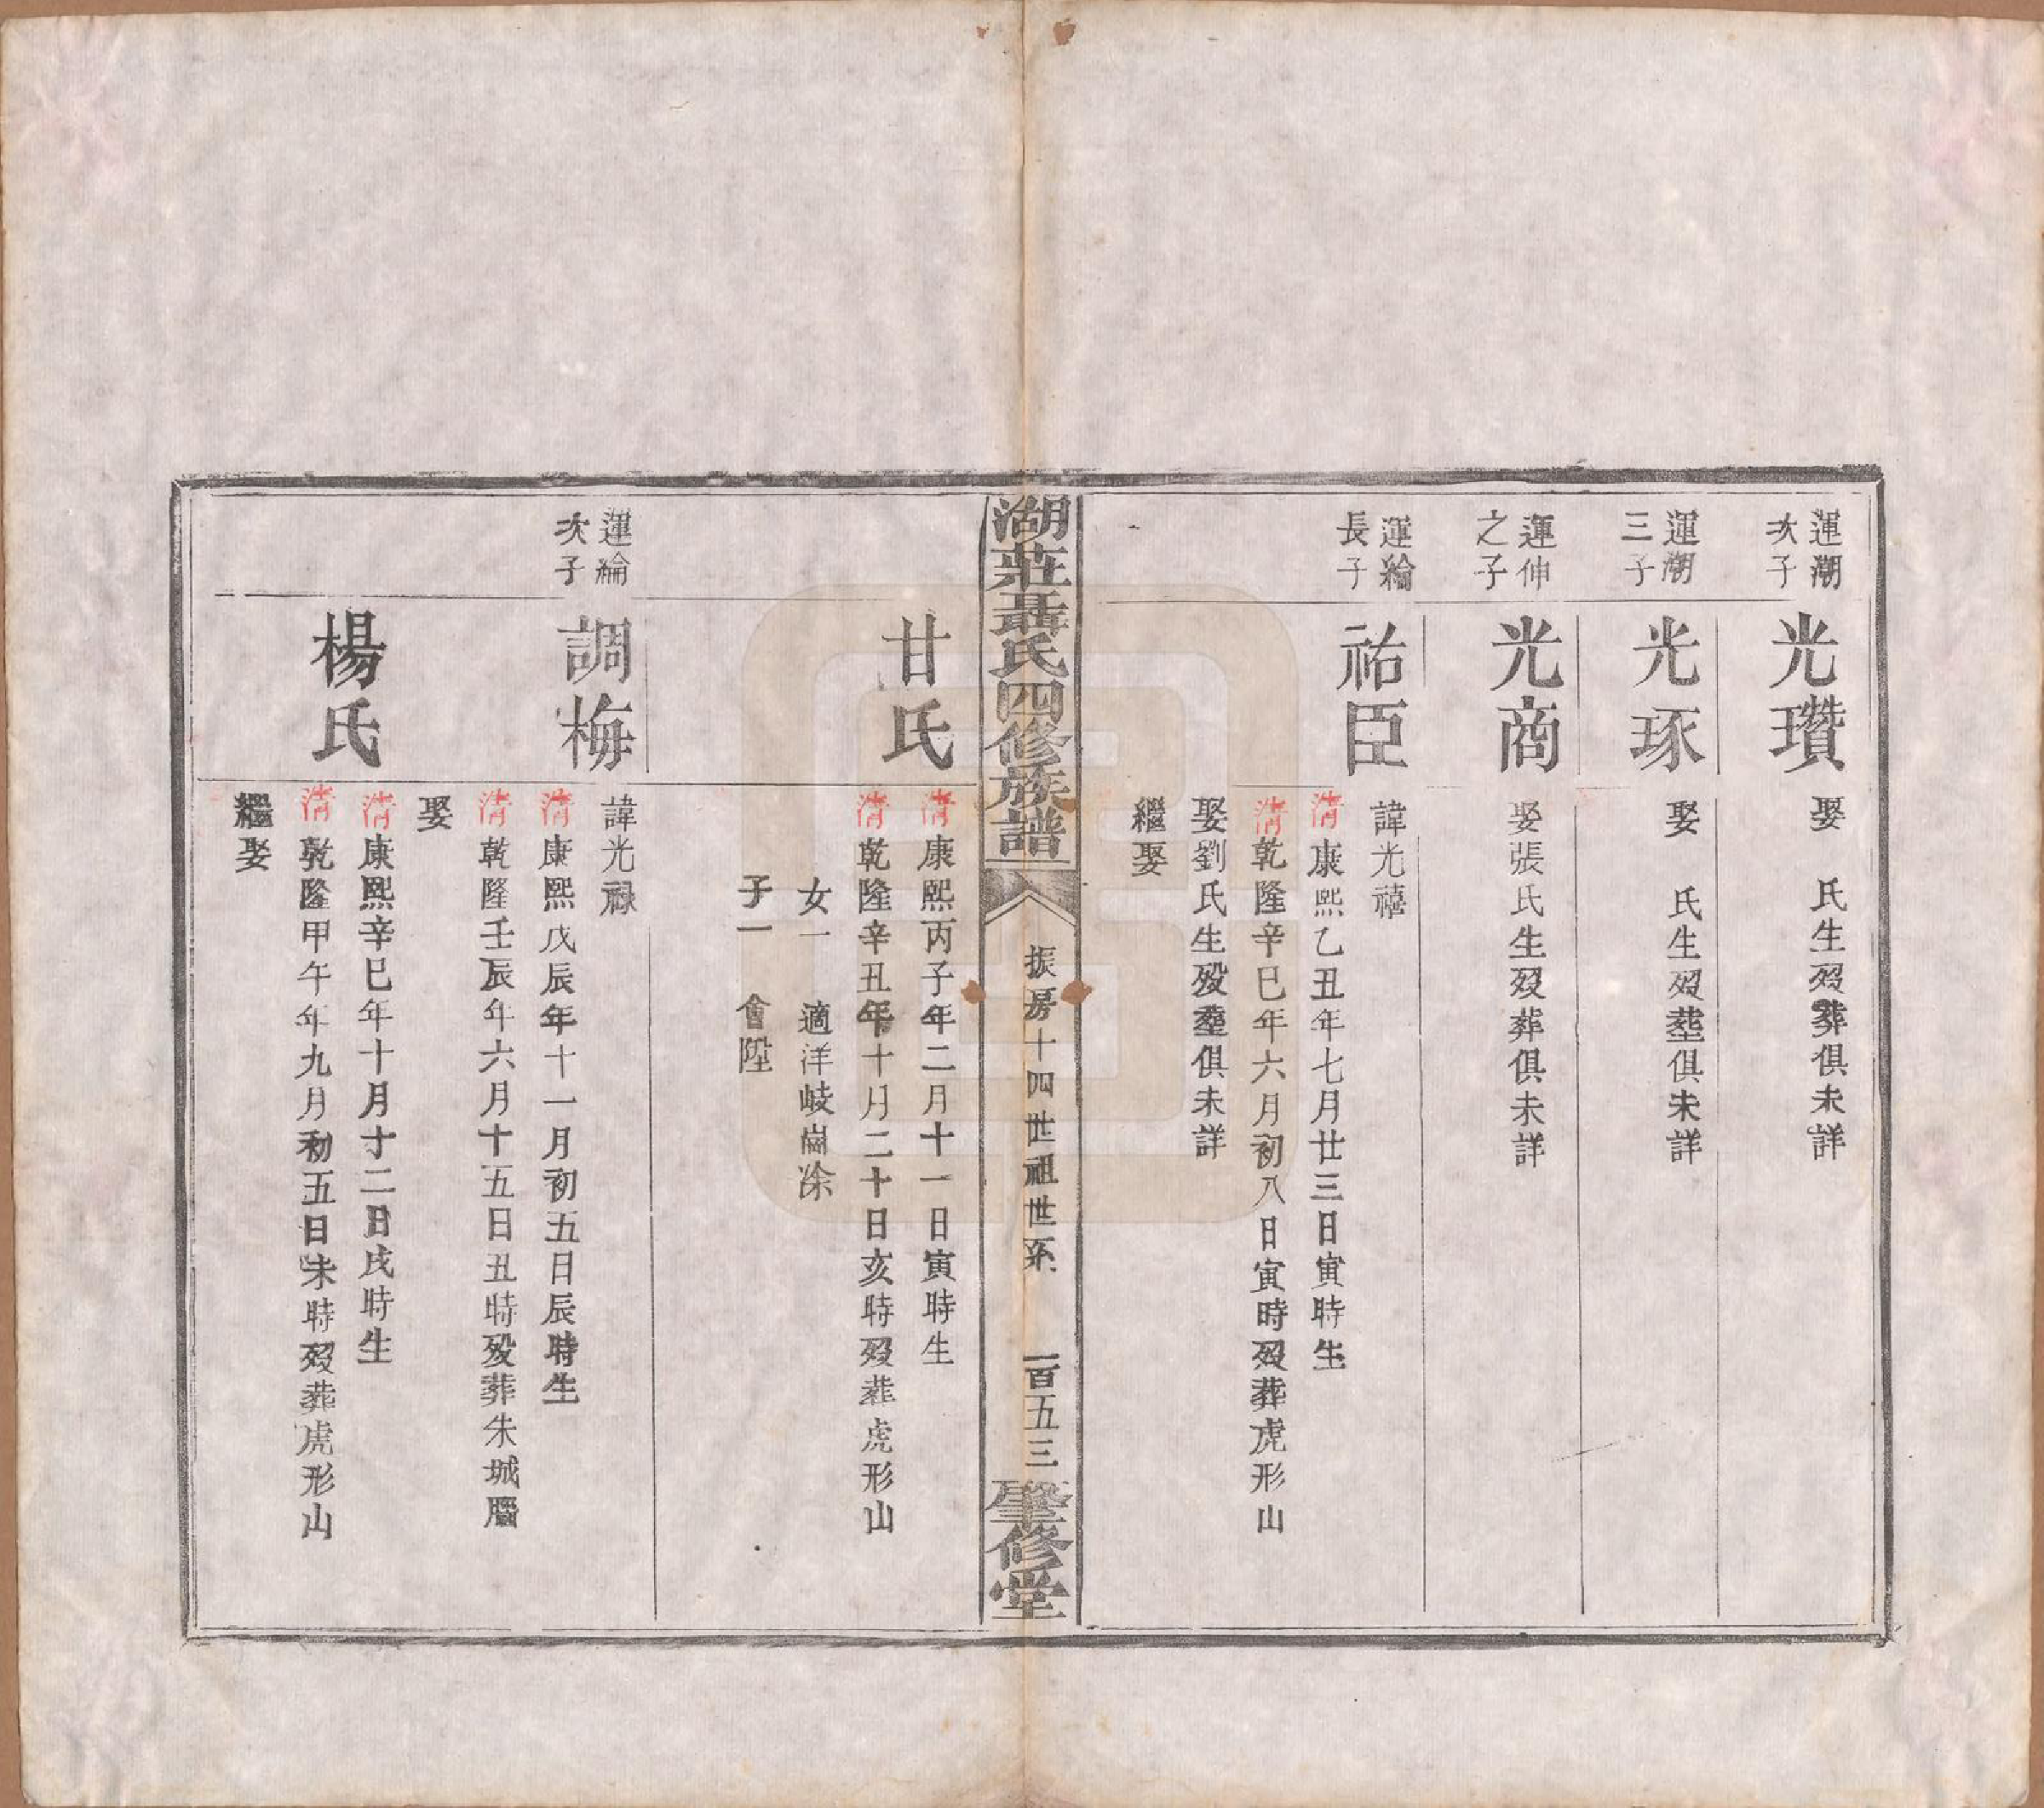 運潮
次子
光瓚
娶　氏生歿葬俱未詳
運潮
三子
光琢
娶　氏生歿塟俱未詳
運伸
之子
光商
娶張氏生歿葬俱未詳
運綸
長子
祐臣
諱光禧
清康熙乙丑年七月廿三日寅時生
清乾隆辛巳年六月初八日寅時歿葬虎形山
娶劉氏生歿塟俱未詳
繼娶
湖莊聶氏四修族譜
振房十四世祖世系
一百五三
肇修堂
甘氏
清康熙丙子年二月十一日寅時生
清乾隆辛丑年十月二十日亥時歿葬虎形山
女一　適洋岐崗涂
子一　會陞
運綸
次子
調梅
諱光禄
清康熙戊辰年十一月初五日辰時生
清乾隆壬辰年六月十五日丑時歿葬朱城腦
娶
楊氏
清康熙辛巳年十月十二日戌時生
清乾隆甲午年九月初五日未時歿葬虎形山
繼娶